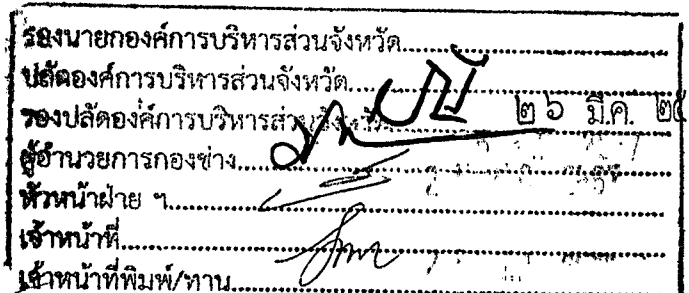 รองนายกองค์การบริหารส่วนจังหวัด
ปลัดองค์การบริหารส่วนจังหวัด
รองปลัดองค์การบริหารส่วนจังหวัด ๒๖ มี.ค.
ผู้อำนวยการกองช่าง
หัวหน้าฝ่าย ฯ
เจ้าหน้าที่
เจ้าหน้าที่พิมพ์/ทาน